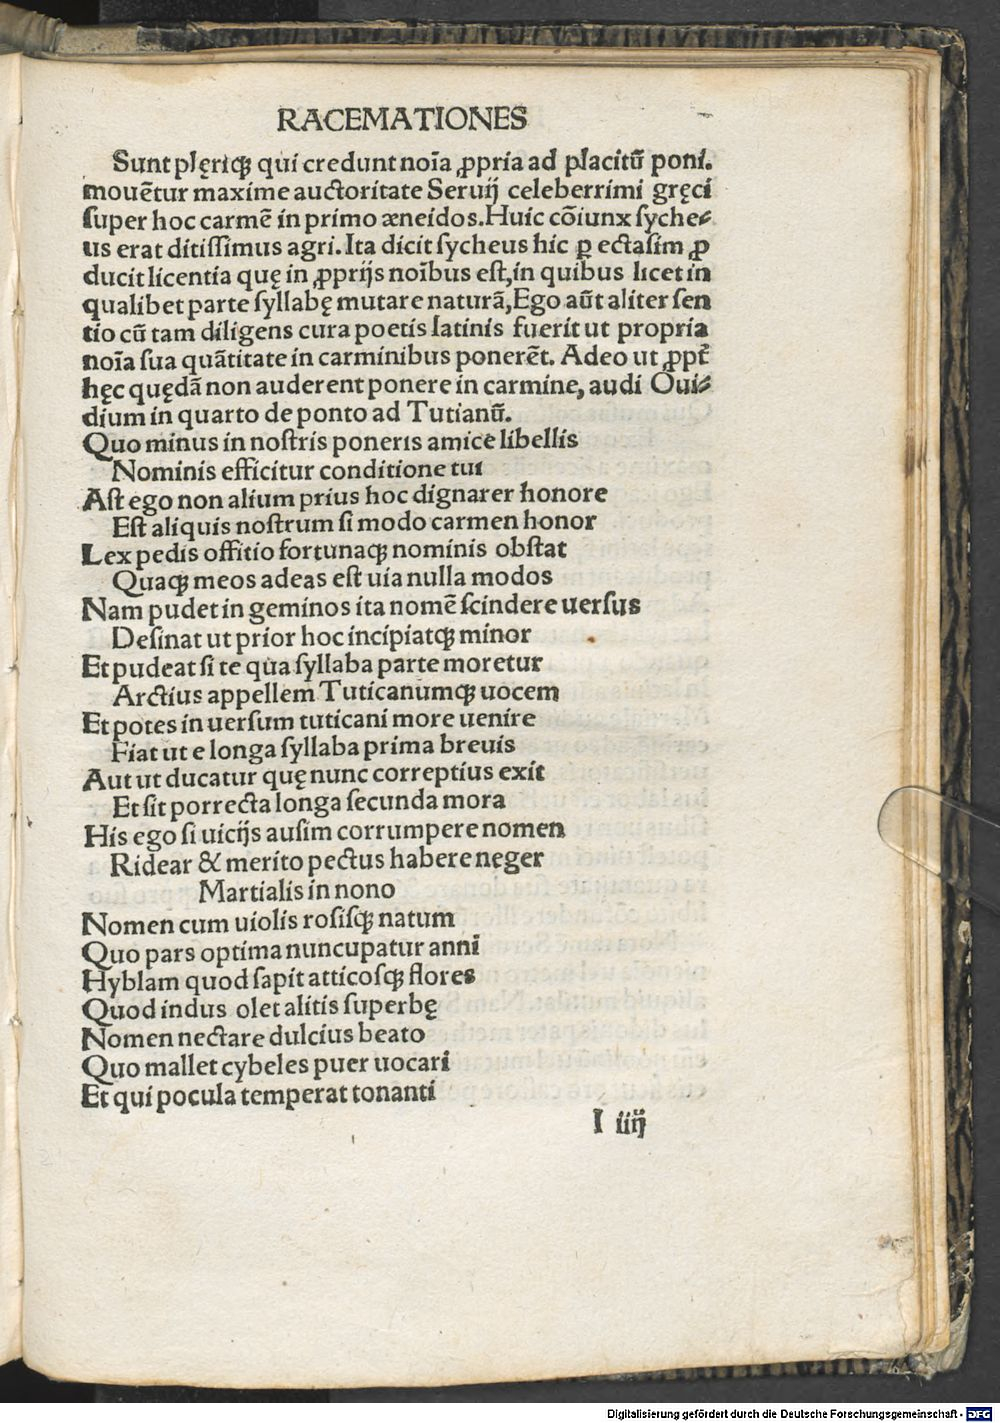 RACEMATIONES
Sunt plęriqꝫ qui credunt noīa ꝓpria ad placitū poni.
mouētur maxime auctoritate Seruij celeberrimi gręci
super hoc carmē in primo æneidos. Huic cōiunx syche⸗
us erat ditissimus agri. Ita dicit sycheus hic ꝑ ectasim ꝓ
ducit licentia quę in ꝓprijs noībus est, in quibus licet in
qualibet parte syllabę mutare naturā, Ego aūt aliter sen
tio cū tam diligens cura poetis latinis fuerit ut propria
noīa sua quātitate in carminibus ponerēt. Adeo ut ꝓpt̄
hęc quędā non auderent ponere in carmine, audi Oui⸗
dium in quarto de ponto ad Tutianū.
Quo minus in nostris poneris amice libellis
Nominis efficitur conditione tui
Ast ego non alium prius hoc dignarer honore
Est aliquis nostrum si modo carmen honor
Lex pedis offitio fortunaqꝫ nominis obstat
Quaqꝫ meos adeas est uia nulla modos
Nam pudet in geminos ita nomē scindere uersus
Desinat ut prior hoc incipiatqꝫ minor
Et pudeat si te qua syllaba parte moretur
Arctius appellem Tuticanumqꝫ uocem
Et potes in uersum tuticani more uenire
Fiat ut e longa syllaba prima breuis
Aut ut ducatur quę nunc correptius exit
Et sit porrecta longa secunda mora
His ego si uicijs ausim corrumpere nomen
Ridear & merito pectus habere neger
Martialis in nono
Nomen cum uiolis rosisqꝫ natum
Quo pars optima nuncupatur anni
Hyblam quod sapit atticosqꝫ flores
Quod indus olet alitis superbę
Nomen nectare dulcius beato
Quo mallet cybeles puer uocari
Et qui pocula temperat tonanti
I iiij
Digitalisierung gefördert durch die Deutsche Forschungsgemeinschaft - DFG